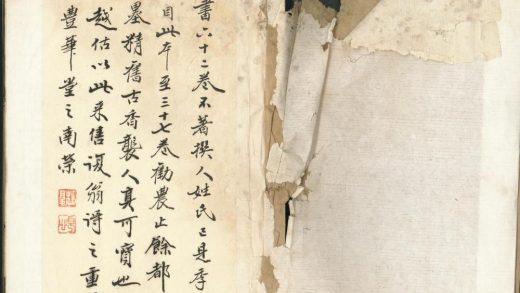 書六十二卷不著撰人姓氏已見季
目此本至三十七卷勸農止餘都
墨精舊古香襲人真可寶也
越估以此來售復翁得之重
豐華堂之南榮